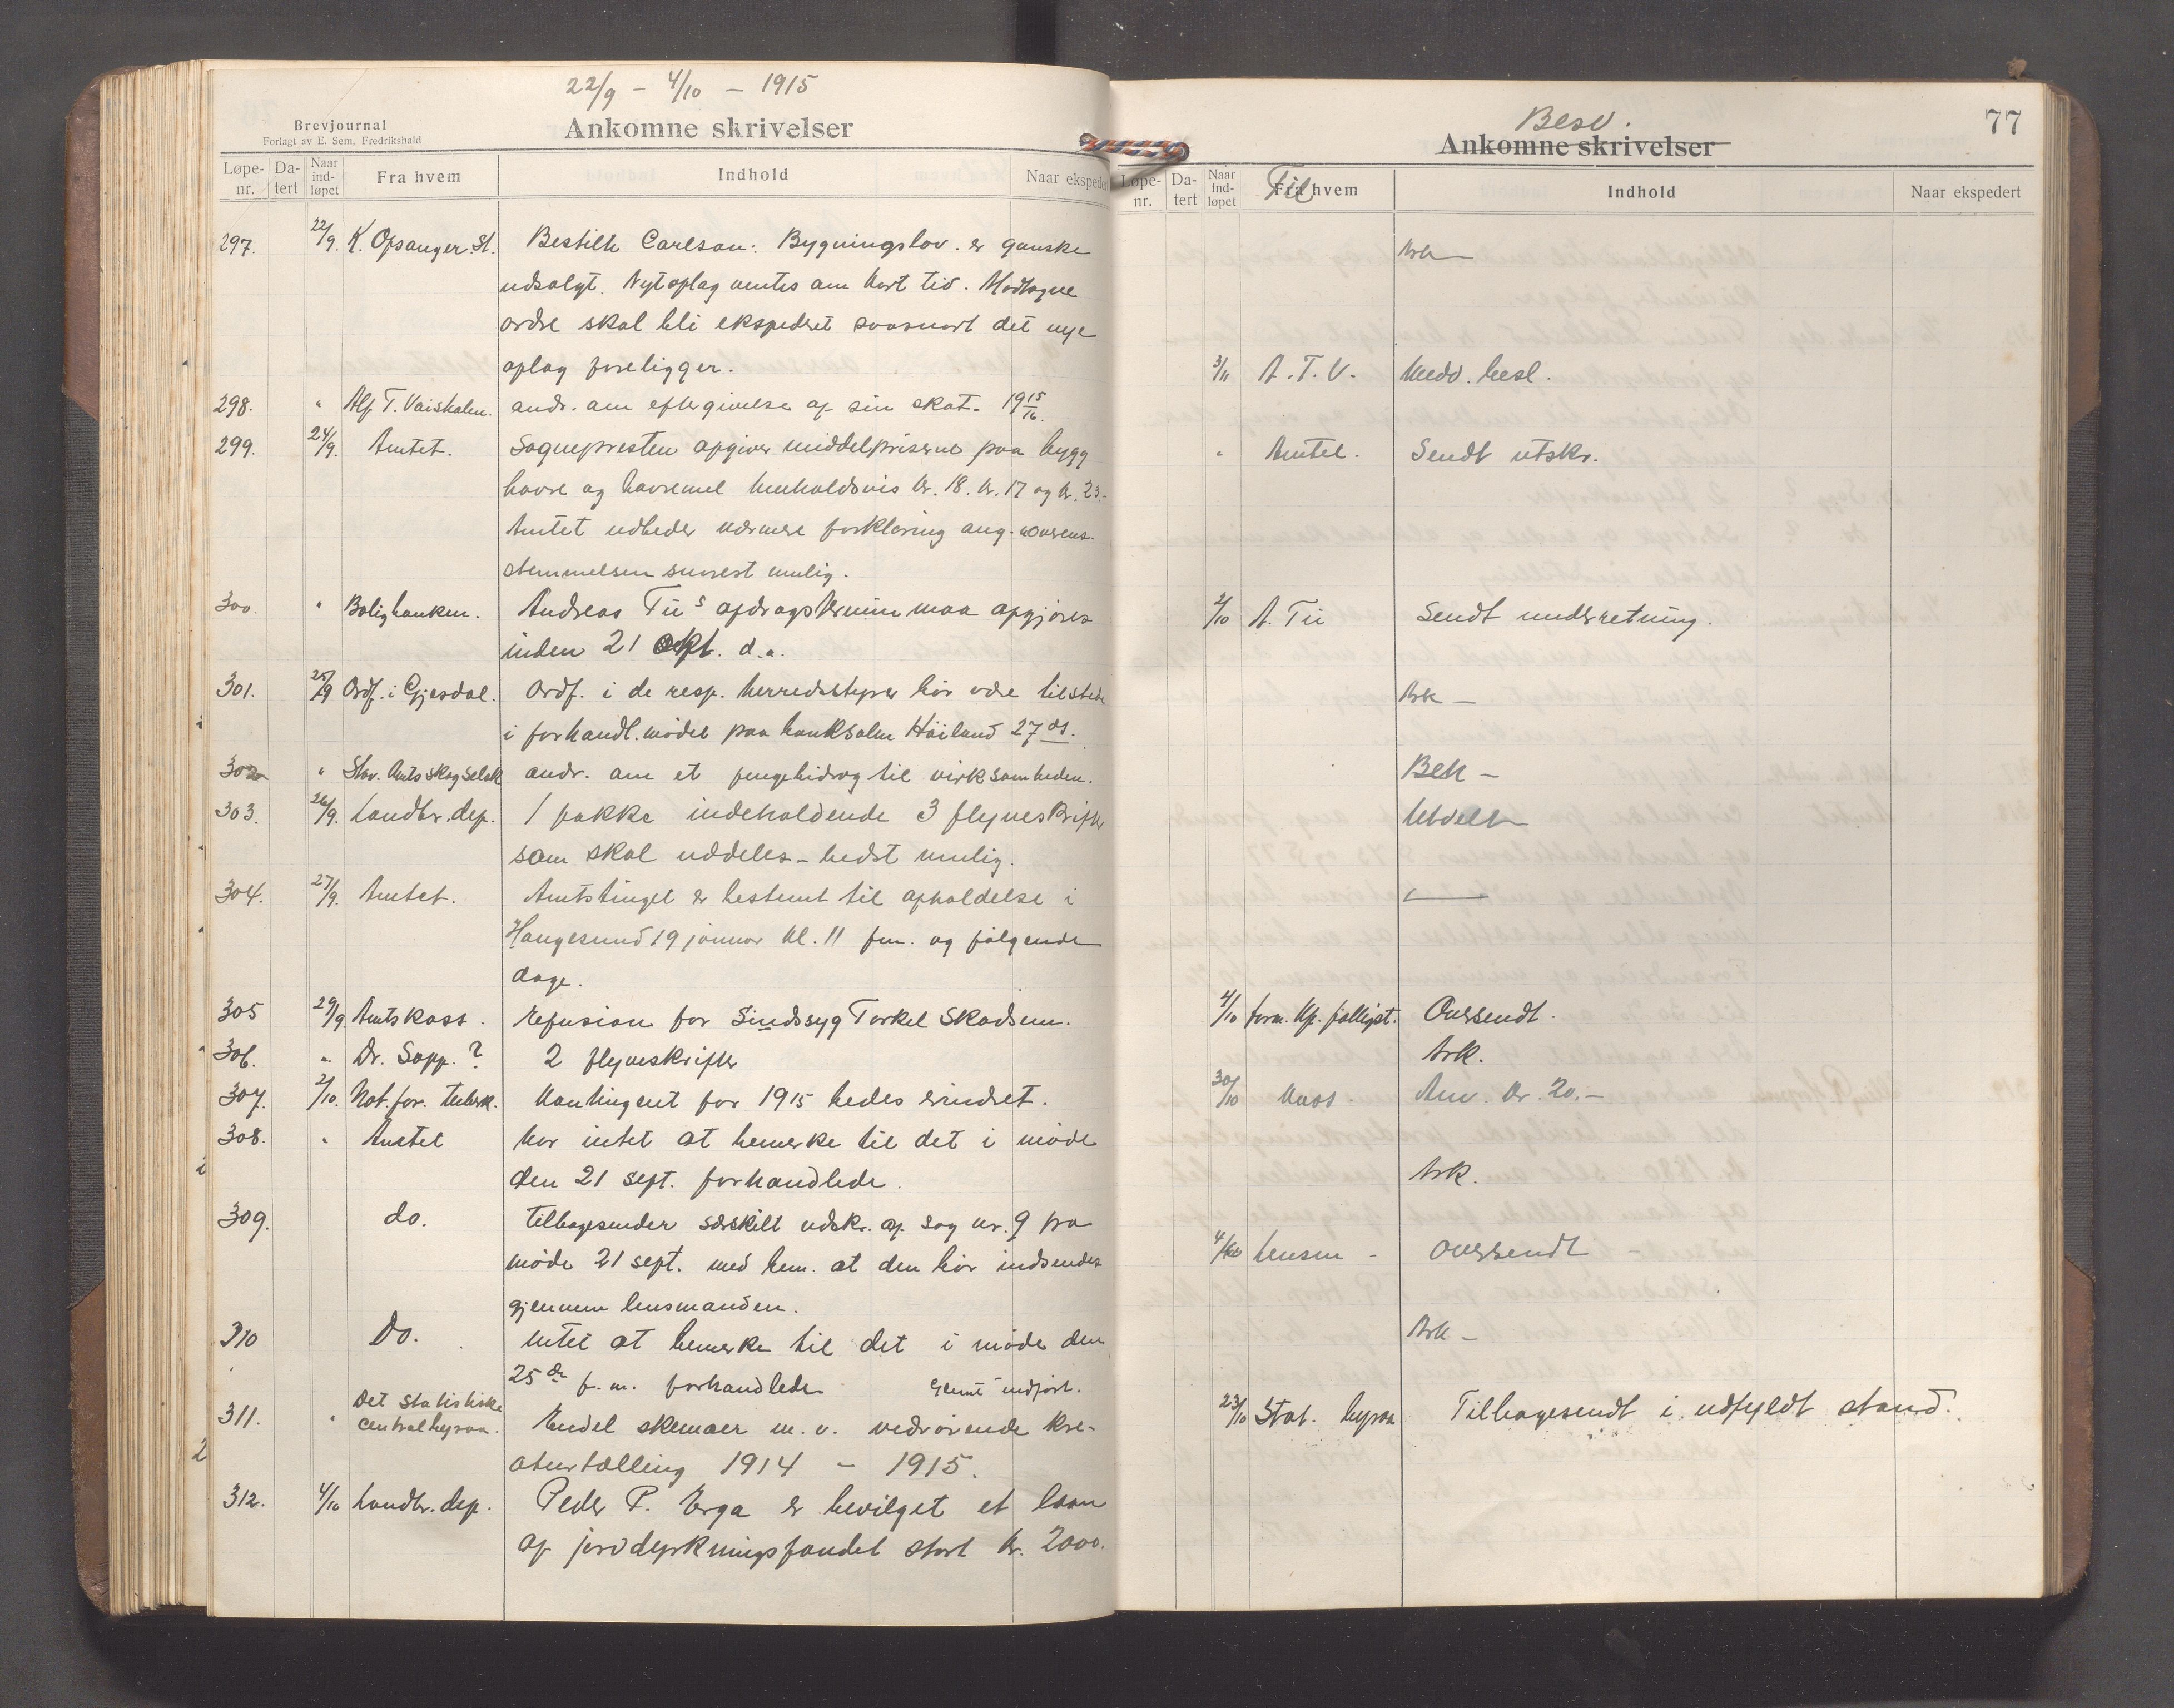 22/9 - 4/10 - 1915
Brevjournal
Forlagt av E. Sem, Fredrikshald
Ankomne skrivelser
Løpe-nr. Da-tert Naar ind-løpet Fra hvem Indhold Naar ekspede
297. 22/9. K. Opsanger. St. Bestilte Carlson: Bygningslov. er ganske
udsolgt. Nyt oplag ventes om kort tid. Modtagne
ordre skal bli ekspederet saasnart det nye
oplag foreligger.
298. " Alf T. andr. om eftergivelse af sin skat. 1915/16.
299. 24/9. Amtet. Sognepresten opgiver middelpriserne paa bygg
havre og havremel henholdsvis kr. 18. kr. 17 og kr. 23.-
Amtet udbeder nærmere forklaring ang. uoverens-
stemmelsen snarest mulig.
300. " Boligbanken. Andreas Tu s afdragstermin maa opgjøres
inden 21 okt. d.a.
301. 25/9 Ordf. i Gjesdal. Ordf. i de resp. herredsstyrer bør være tilstede
i forhandl. mødet paa banksalen Høiland 27 ds.
302 " Stav. Amts skogselsk andr. om et pengebidrag til virksomheden.
303. 26/9. Landbr. dep. 1 pakke indeholdende 3 flyveskrifter
som skal uddeles - bedst mulig.
304. 27/9. Amtet. Amtstinget er bestemt til afholdelse i
Haugesund 19 januar kl. 11 fm. og følgende
dage.
305 29/9. Amtskass. Refusion for Sindssyg Torkel Skadsem.
306. " Dr. Sopp. ? 2 flyveskrifter
307. 2/10. Nat. for. tuberk. Kontingent for 1915 bedes erindret.
308. " Amtet har intet at bemerke til det i møde
den 21 sept. forhandlede.
309. do. Tilbagesender særskilt udskr. af sag nr. 9 fra
møde 21 sept. med bem. at den bør indsendes
gjennem lensmanden.
310 Do. intet at bemerke til det i møde den
25 de f. m. forhandlede indført.
311. " Det Statistiske centralbyraa. Endel skemaer m. v. vedrørende kre-
aturtælling 1914 - 1915.
312. 4/10 Landbr. dep. Peder P. Erga er bevilget et laan
af jorddyrkningsfondet stort kr. 2000.
77
Besv.
Ankomne skrivelser
Løpe-nr. Da-tert Naar ind-løpet Fra hvem Til Indhold Naar ekspedert
Ark
3/11 A. T. V. Medd. besl.
" Amtet. Sendt utskr.
2/10 A. Tu Sendt underretning.
Ark -
Bek -
Utdelt
4/10 form. Kp. fattigst. Oversendt.
Ark.
30/10 Kass. Anv. kr. 20.-
Ark.
4/10 lensm - oversendt
Ark -
23/10 Stat. byraa Tilbagesendt i udfyldt stand.